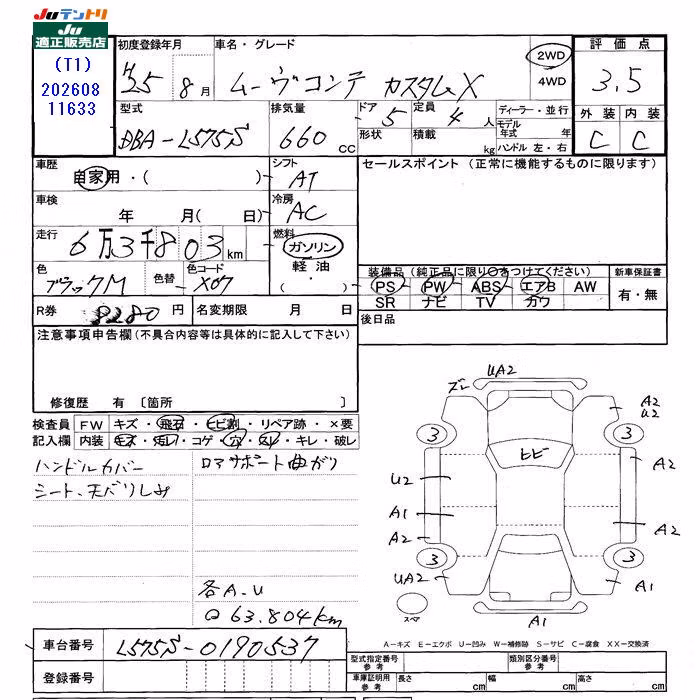 Juテントリ
Ju
適正販売店
(T1)
202608
11633
初度登録年月
H25 8月
車名・グレード
ムーヴコンテ カスタムX
2WD
4WD
評価点
3.5
外装 内装
C C
型式
DBA-L575S
排気量
660 CC
ドア 5
形状
定員 4人
積載 kg
ディーラー・並行
モデル年式 年
ハンドル 左・右
車歴
自家用・( )
シフト
AT
セールスポイント (正常に機能するものに限ります)
車検
年 月( 日)
冷房
AC
走行
6万3千803km
燃料
ガソリン
軽油・
( )
色
ブラックM
色替
色コード
X07
装備品(純正品に限り○をつけてください)
PS PW ABS エアB AW
SR ナビ TV カワ
新車保証書
有・無
R券 8280円
名変期限 月 日
後日品
注意事項申告欄(不具合内容等は具体的に記入して下さい)
修復歴 有 〔箇所
検査員記入欄
FW キズ・飛石・ヒビ割・リペア跡・×要
内装 キズ・汚レ・コゲ・穴・スレ・キレ・破レ
ハンドルカバー
シート、天バリしみ
ロアサポート曲ガリ
各A.U
63.804km
ズレ
UA2
A2
U2
3
3
ヒビ
U2
A2
A1
A2
A2
3
3
UA2
A1
A1
スペア
A-キズ E-エクボ U-凹み W-補修跡 S-サビ C-腐食 XX-交換済
車台番号
L575S-0190537
登録番号
型式指定番号
参考
類別区分番号
参考
車庫証明用
参考
長さ cm
幅 cm
高さ cm